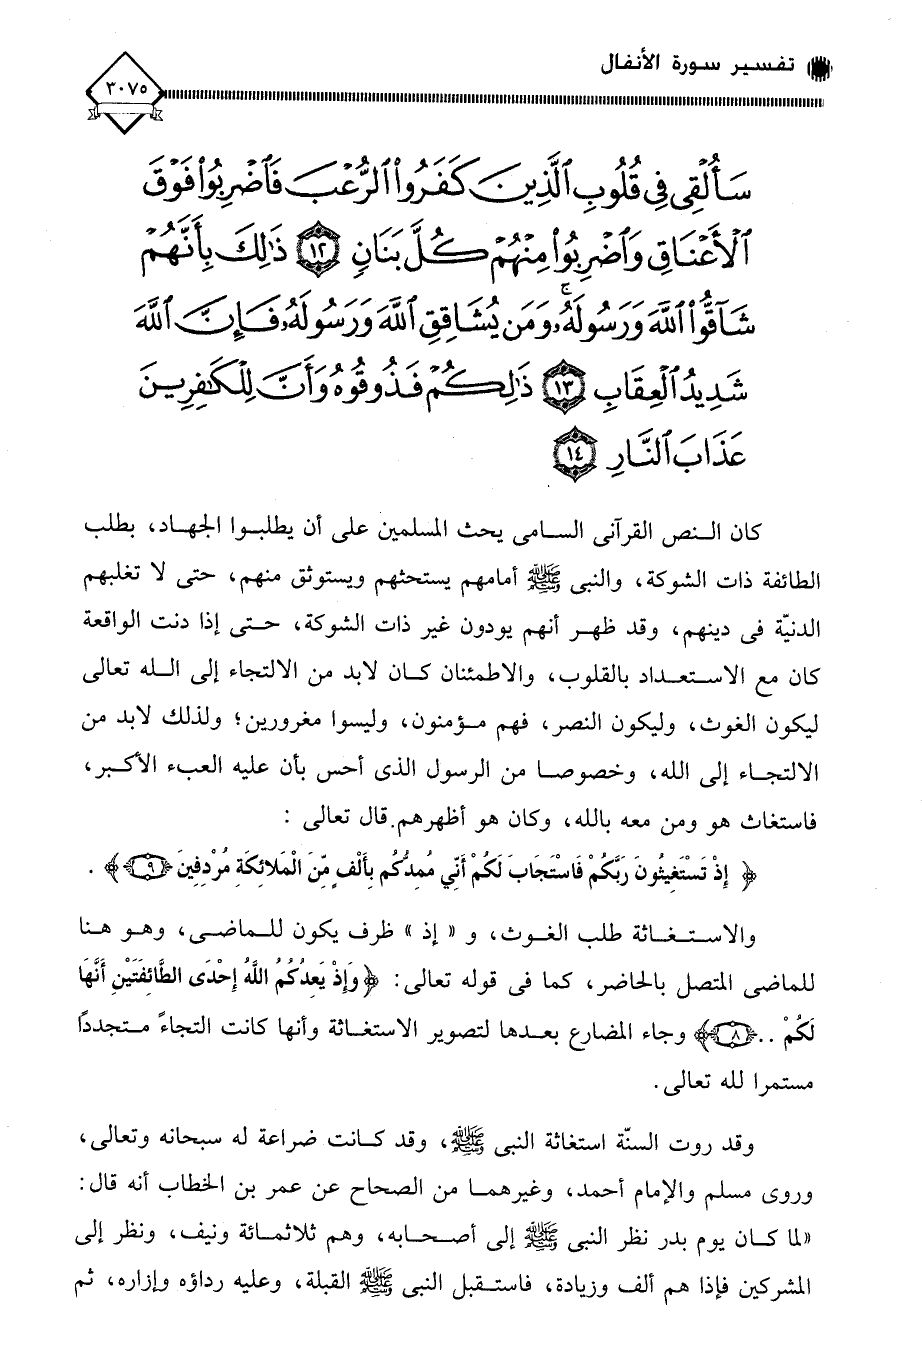 تفسير سورة الأنفال
٣٠٧٥
سَأُلْقِى فِى قُلُوبِ ٱلَّذِينَ كَفَرُوا۟ ٱلرُّعْبَ فَٱضْرِبُوا۟ فَوْقَ
ٱلْأَعْنَاقِ وَٱضْرِبُوا۟ مِنْهُمْ كُلَّ بَنَانٍ ١٢ ذَٰلِكَ بِأَنَّهُمْ
شَآقُّوا۟ ٱللَّهَ وَرَسُولَهُۥ ۚ وَمَن يُشَاقِقِ ٱللَّهَ وَرَسُولَهُۥ فَإِنَّ ٱللَّهَ
شَدِيدُ ٱلْعِقَابِ ١٣ ذَٰلِكُمْ فَذُوقُوهُ وَأَنَّ لِلْكَٰفِرِينَ
عَذَابَ ٱلنَّارِ ١٤
كان النص القرآنى السامى يحث المسلمين على أن يطلبوا الجهاد، بطلب
الطائفة ذات الشوكة، والنبى ﷺ أمامهم يستحثهم ويستوثق منهم، حتى لا تغلبهم
الدنيّة فى دينهم، وقد ظهر أنهم يودون غير ذات الشوكة، حتى إذا دنت الواقعة
كان مع الاستعداد بالقلوب، والاطمئنان كان لابد من الالتجاء إلى الله تعالى
ليكون الغوث، وليكون النصر، فهم مؤمنون، وليسوا مغرورين؛ ولذلك لابد من
الالتجاء إلى الله، وخصوصا من الرسول الذى أحس بأن عليه العبء الأكبر،
فاستغاث هو ومن معه بالله، وكان هو أظهرهم. قال تعالى :
﴿ إِذْ تَسْتَغِيثُونَ رَبَّكُمْ فَاسْتَجَابَ لَكُمْ أَنِّي مُمِدُّكُم بِأَلْفٍ مِّنَ الْمَلائِكَةِ مُرْدِفِينَ ﴿٩﴾ ﴾ .
والاستغاثة طلب الغوث، و « إذ » ظرف يكون للماضى، وهو هنا
للماضى المتصل بالحاضر، كما فى قوله تعالى: ﴿ وَإِذْ يَعِدُكُمُ اللَّهُ إِحْدَى الطَّائِفَتَيْنِ أَنَّهَا
لَكُمْ .. ﴿٨﴾ ﴾ وجاء المضارع بعدها لتصوير الاستغاثة وأنها كانت التجاءً متجدداً
مستمرا لله تعالى.
وقد روت السنّة استغاثة النبى ﷺ، وقد كانت ضراعة له سبحانه وتعالى،
وروى مسلم والإمام أحمد، وغيرهما من الصحاح عن عمر بن الخطاب أنه قال:
«لما كان يوم بدر نظر النبى ﷺ إلى أصحابه، وهم ثلاثمائة ونيف، ونظر إلى
المشركين فإذا هم ألف وزيادة، فاستقبل النبى ﷺ القبلة، وعليه رداؤه وإزاره، ثم